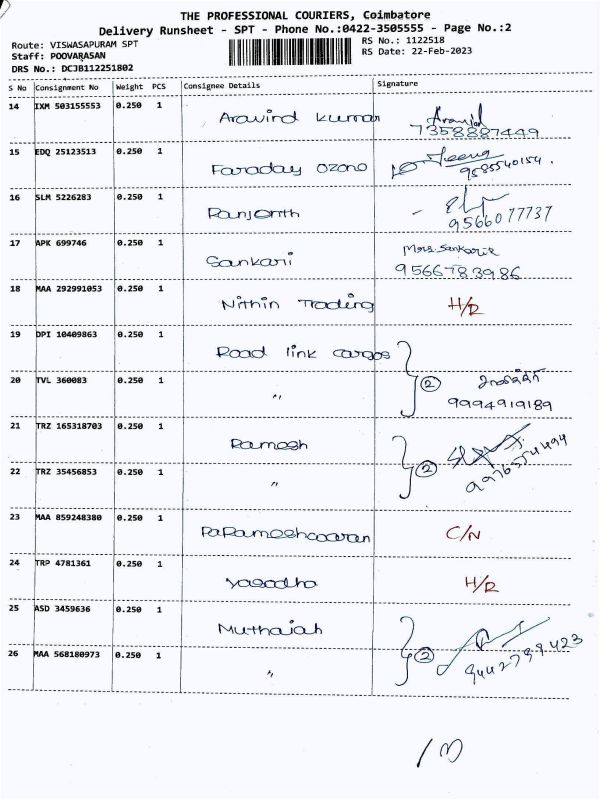 THE PROFESSIONAL COURIERS, Coimbatore
Delivery Runsheet - SPT - Phone No.:0422-3505555 - Page No.:2
Route: VISWASAPURAM SPT RS No.: 1122518
Staff: POOVARASAN RS Date: 22-Feb-2023
DRS No.: DCJB112251802
S No Consignment No Weight PCS Consignee Details Signature
14 IXM 503155553 0.250 1 Aravind kumar Aravind
7358887449
15 EDQ 25123513 0.250 1 Faraday ozono
9585540154.
16 SLM 5226283 0.250 1 Ranjenth
9566077737
17 APK 699746 0.250 1 Sankari
9566783986
18 MAA 292991053 0.250 1 Nithin Trading H/R
19 DPI 10409863 0.250 1 Road link cargos
20 TVL 360083 0.250 1 " 2
9994919189
21 TRZ 165318703 0.250 1 Ramesh
22 TRZ 35456853 0.250 1 " 2
23 MAA 859248380 0.250 1 PaRameshwaran C/N
24 TRP 4781361 0.250 1 Yasodha H/R
25 ASD 3459636 0.250 1 Muthaiah
26 MAA 568180973 0.250 1 " 2
9442739423